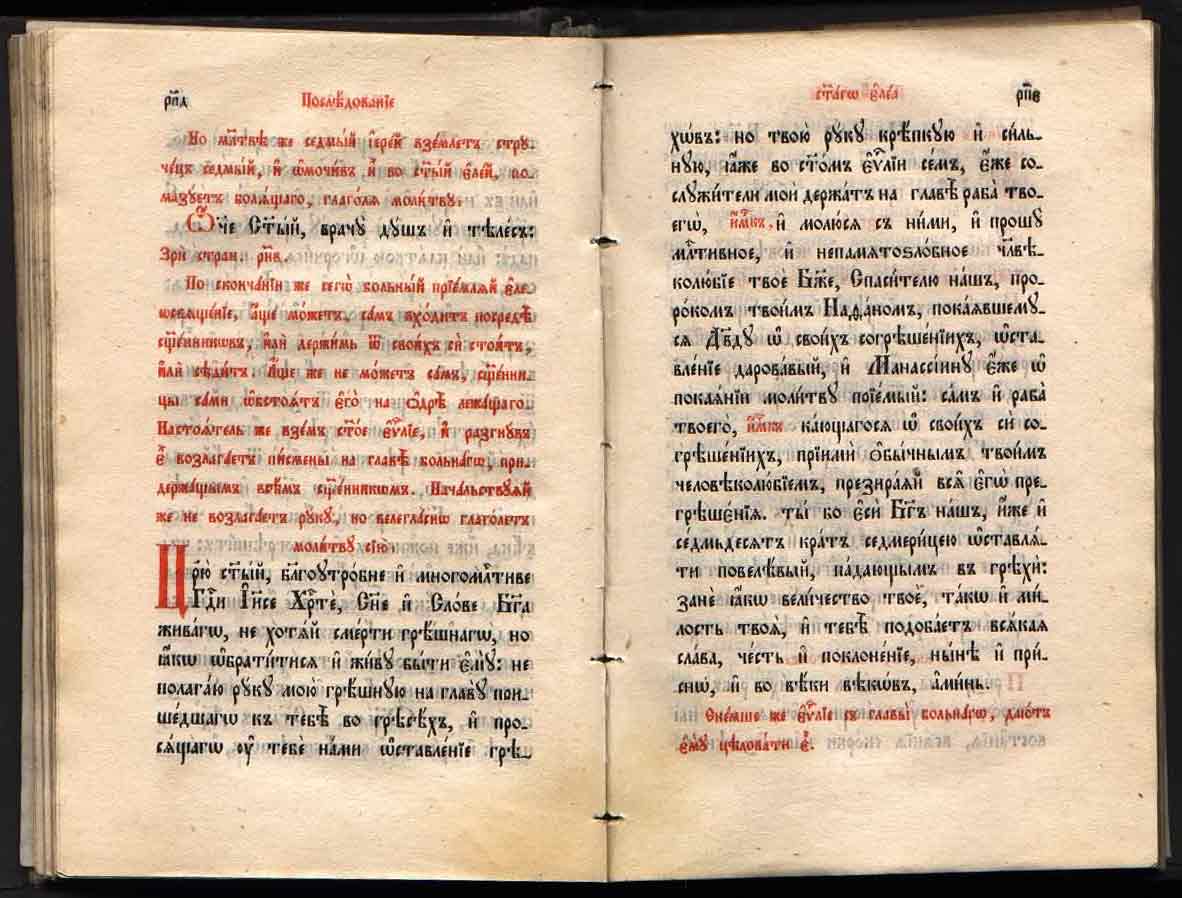 рп҃д
Послѣ́дованїе
По мл҃твѣ же седмы́й і҆ере́й взе́млетъ стру-
че́цъ седмы́й, и҆ ѡ҆мочи́въ и҆̀ во ст҃ы́й є҆ле́й, по-
ма́зуетъ болѧ́щаго, глаго́лѧ моли́тву:
Ѻ҆́ч҃е ст҃ы́й, врачꙋ̀ дꙋ́шъ и҆ тѣле́съ:
Зри̑ стран:
По сконча́нїи же сегѡ̀ больны́й прїе́млѧй є҆лео-
ѡсвѧще́нїе, а҆́ще мо́жетъ, са́мъ вхо́дитъ посредѣ̀
сщ҃е́нникѡвъ, и҆лѝ держи́мь ѿ свои́хъ сѝ стои́тъ,
и҆лѝ сѣди́тъ. А҆́ще же не мо́жетъ са́мъ, сщ҃е́нни-
цы са́ми ѡ҆бстоѧ́тъ є҆го̀ на ѻ҆дрѣ̀ лежа́щаго.
Настоѧ́тель же взе́мъ ст҃о́е є҆ѵⷢ҇лїе, и҆ разгнꙋ́въ
є҆̀ возлага́етъ пи́смены на главѣ̀ больна́гѡ, при-
держа́щымъ всѣ̑мъ сщ҃е́нникѡмъ. Нача́льствꙋѧй
же не возлага́етъ рꙋкꙋ̀, но велегла́снѡ глаго́летъ
моли́твꙋ сїю̀:
Цр҃ю̀ ст҃ы́й, бл҃гоꙋтро́бне и҆ многомл҃тиве
Гдⷭ҇и І҆и҃се Хрⷭ҇тѐ, Сн҃е и҆ Сло́ве Бг҃а
жива́гѡ, не хотѧ́й сме́рти грѣ́шнагѡ, но
ꙗ҆́кѡ ѡ҆брати́тисѧ и҆ жи́вꙋ бы́ти є҆мꙋ̀: не
полага́ю рꙋ́кꙋ мою̀ грѣ́шнꙋю на главꙋ̀ при-
ше́дшагѡ къ тебѣ̀ во грѣсѣ́хъ, и҆ про-
сѧ́щагѡ ᲂу҆ тебѐ на́ми ѡ҆ставле́нїе грѣ-
ст҃а́гѡ є҆ле́а
рп҃е
хѡ́въ: но твою̀ рꙋ́кꙋ крѣ́пкꙋю и҆ си́ль-
нꙋю, ꙗ҆́же во ст҃о́мъ є҆ѵⷢ҇лїи се́мъ, є҆́же со-
слꙋжи́тели моѝ держа́тъ на главѣ̀ раба̀ тво-
егѡ̀, и҆́м҃къ, и҆ молю́сѧ съ ни́ми, и҆ прошꙋ̀
мл҃тивное, и҆ непамѧтоѕло́бное чл҃вѣ-
колю́бїе твоѐ Бж҃е, Спаси́телю на́шъ, про-
ро́комъ твои́мъ Наѳа́номъ, пока́ѧвшемꙋ-
сѧ Дв҃дꙋ ѡ҆ свои́хъ согрѣше́нїихъ, ѡ҆ста-
вле́нїе дарова́вый, и҆ Манассі́инꙋ є҆́же ѡ҆
покаѧ́нїи моли́твꙋ поїе́мый: са́мъ и҆ раба̀
твоего̀, и҆́м҃къ каю́щагосѧ ѡ҆ свои́хъ сѝ со-
грѣше́нїихъ, прїимѝ ѻ҆бы́чнымъ твои́мъ
человѣколю́бїемъ, презира́ѧй всѧ҄ є҆гѡ̀ пре-
грѣше́нїѧ. ты́ бо є҆сѝ Бг҃ъ на́шъ, и҆́же и҆
се́дмьдесѧтъ кра́тъ седмери́цею ѡ҆ставлѧ́-
ти повелѣ́вый, па́дающымъ въ грѣхѝ:
занѐ ꙗ҆́кѡ вели́чество твоѐ, та́кѡ и҆ ми́-
лость твоѧ̀, и҆ тебѣ̀ подоба́етъ всѧ́каѧ
сла́ва, че́сть и҆ поклоне́нїе, ны́нѣ и҆ при́-
снѡ, и҆ во вѣ́ки вѣкѡ́въ, а҆ми́нь.
Сне́мше же є҆ѵⷢ҇лїе съ главы̀ больна́гѡ, даю́тъ
є҆мꙋ̀ цѣлова́ти є҆̀.